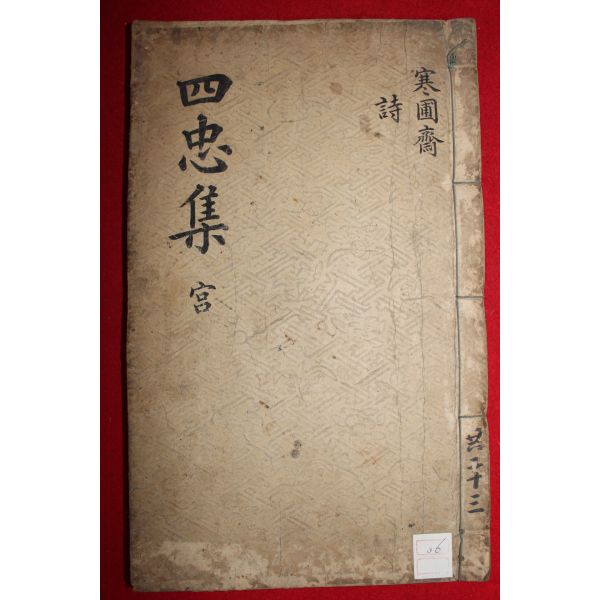 寒圃齋
詩
四忠集 宮
共二十三
06